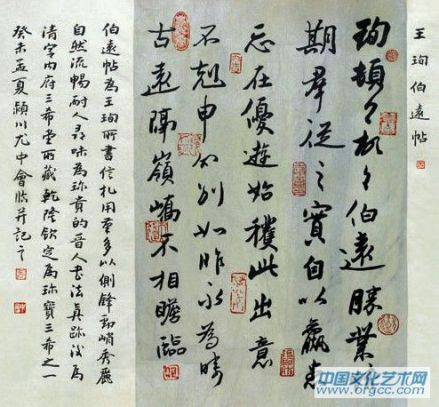 王珣伯遠帖
珣頓々首々伯遠勝業
期羣從之寶自以羸患
志在優遊始獲此出意
不剋申分別如昨永為疇
古遠隔嶺嶠不相瞻臨
伯遠帖為王珣所書信札用筆多以側鋒勁峭秀麗
自然流暢耐人尋味為珍貴的晉人書法真跡後為
清宮內府三希堂所藏乾隆欽定為珍寶三希之一
癸未孟夏潁川尤中會臨并記之
中国文化艺术网
www.orgcc.com